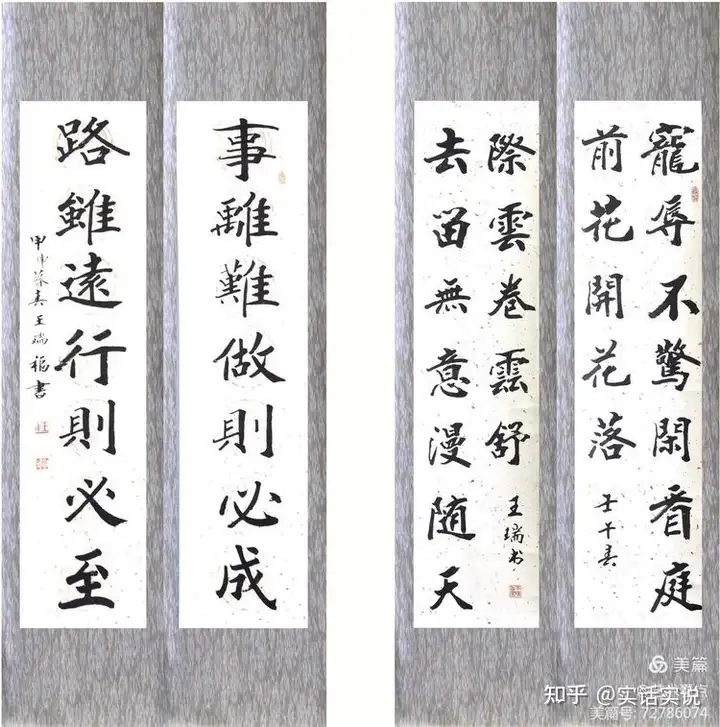 寵辱不驚閑看庭
前花開花落
壬午春
去留無意漫随天
際雲卷雲舒
王瑞书
事離難做則必成
路雖遠行則必至
甲申暮春王瑞書
美篇
知乎 @实话实说
美篇号: 72786074